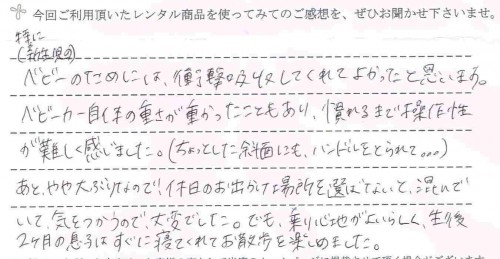 今回ご利用頂いたレンタル商品を使ってみてのご感想を、ぜひお聞かせ下さいませ。
特に
(新生児の)
ベビーのためには、衝撃吸収してくれてよかったと思います。
ベビーカー自体の重さが重かったこともあり、慣れるまで操作性
が難しく感じました。(ちょっとした斜面にも、ハンドルをとられて...)
あと、やや大ぶりなので、休日のお出かけな場所を選ばないと、混んで
いて、気をつかうので、大変でした。でも、乗り心地がよいらしく、生後
2ヶ月の息子はすぐに寝てくれてお散歩を楽しめました。